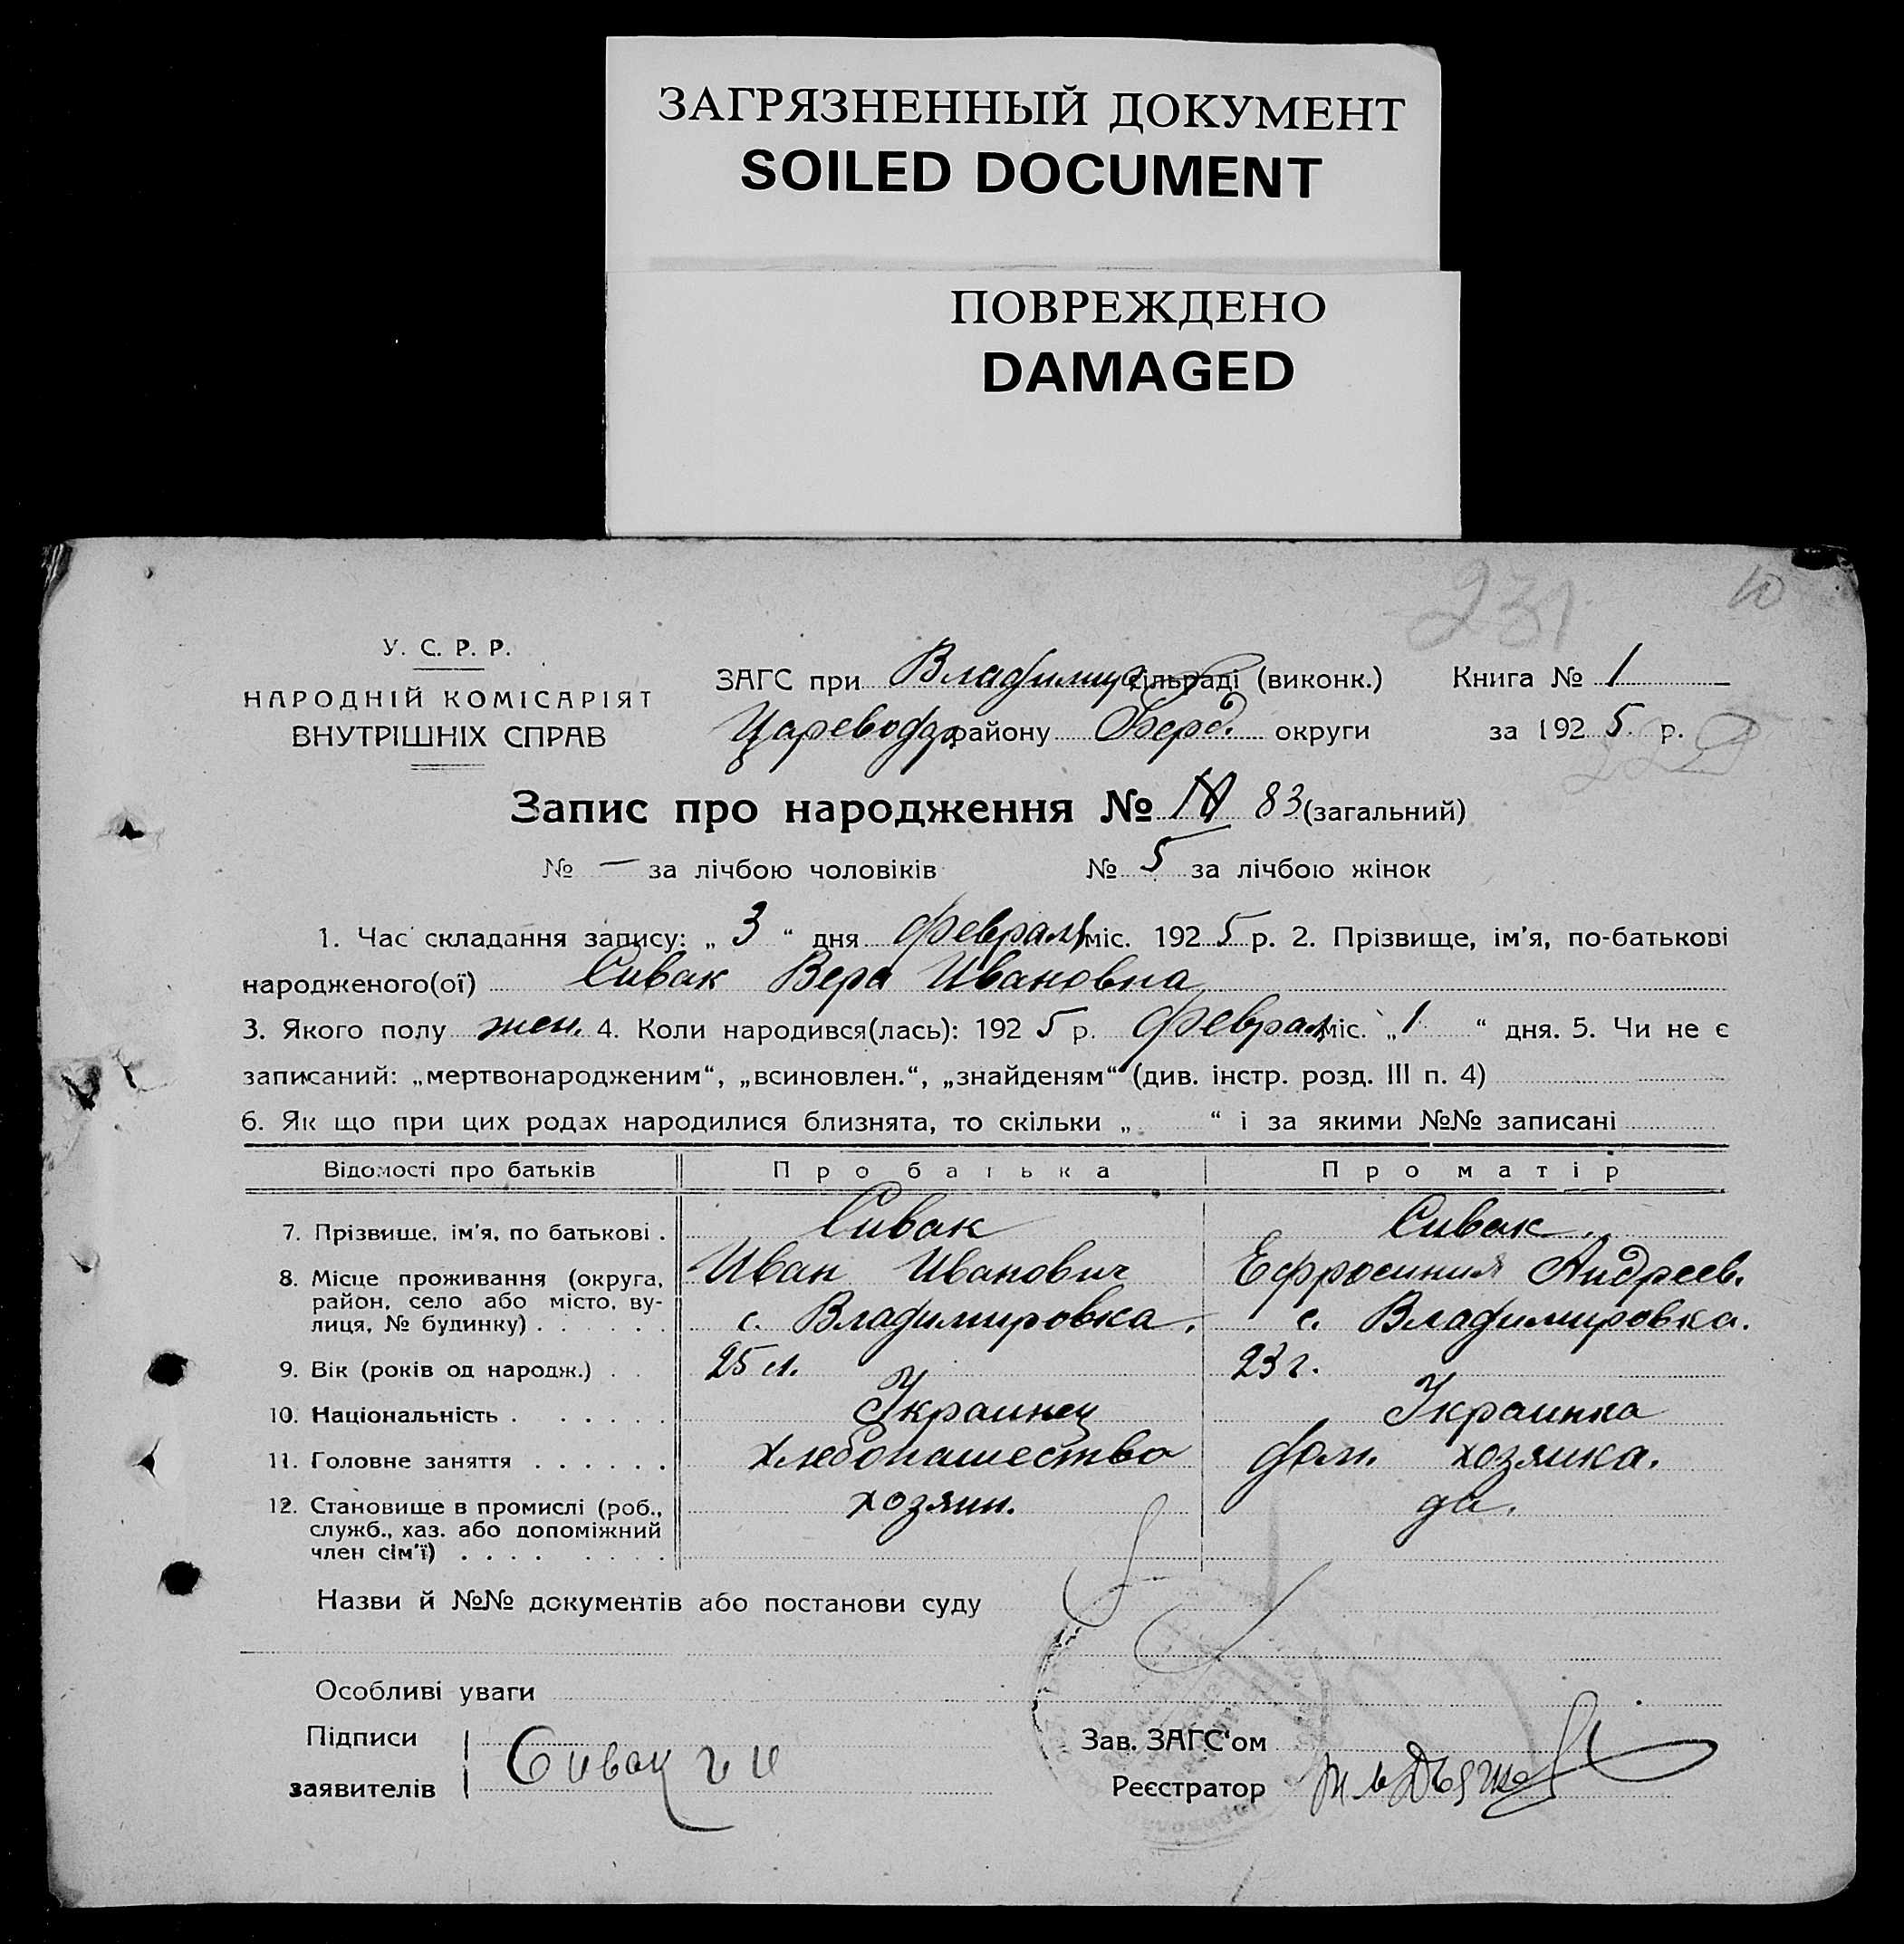 ЗАГРЯЗНЕННЫЙ ДОКУМЕНТ
SOILED DOCUMENT
ПОВРЕЖДЕНО
DAMAGED
231
10
У. С. Р. Р.
НАРОДНІЙ КОМІСАРІЯТ
ВНУТРІШНІХ СПРАВ
ЗАГС при Владимир сільраді (виконк.) Книга № 1
Цареводар району Берд. округи за 1925 р.
Запис про народження № 83 (загальний)
№ — за лічбою чоловіків № 5 за лічбою жінок
1. Час складання запису: „ 3 “ дня февраля міс. 1925 р. 2. Прізвище, ім’я, по-батькові
народженого(ої) Сивак Вера Ивановна
3. Якого полу жен. 4. Коли народився(лась): 1925 р. февраля міс. „ 1 “ дня. 5. Чи не є
записаний: „мертвонародженим“, „всиновлен.“, „знайденям“ (див. інстр. розд. III п. 4)
6. Як що при цих родах народилися близнята, то скільки „ “ і за якими №№ записані
Відомості про батьків Про батька Про матір
7. Прізвище, ім’я, по батькові . Сивак Сивак.
Иван Иванович Ефросиния Андреев.
8. Місце проживання (округа,
район, село або місто, ву-
лиця, № будинку) . . . . . . с. Владимировка. с. Владимировка.
9. Вік (років од народж.) . . 25 л. 23 г.
10. Національність . . . . . . Украинец Украинка
11. Головне заняття . . . . . . хлебопашество дом. хозяйка.
12. Становище в промислі (роб., хозяин. да.
служб., хаз. або допоміжний
член сім’ї) . . . . . . . .
Назви й №№ документів або постанови суду
Особливі уваги
Підписи
заявителів Сивак и и
Зав. ЗАГС‘ом
Реєстратор